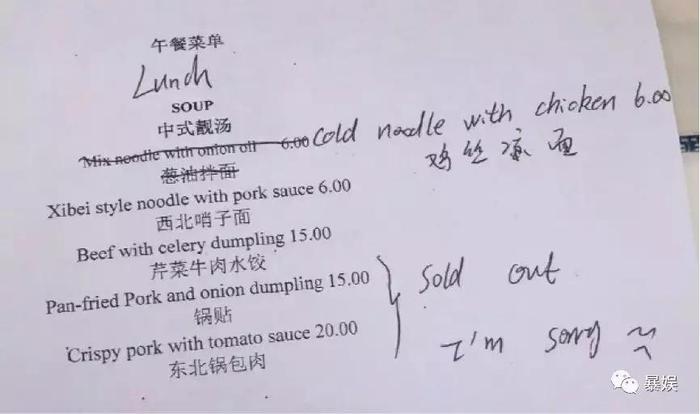 午餐菜单
Lunch
SOUP
中式靓汤
Mix noodle with onion oil 6.00 Cold noodle with chicken 6.00
葱油拌面 鸡丝凉面
Xibei style noodle with pork sauce 6.00
西北哨子面
Beef with celery dumpling 15.00
芹菜牛肉水饺
Pan-fried Pork and onion dumpling 15.00
锅贴
Sold out
Crispy pork with tomato sauce 20.00
东北锅包肉
I'm sorry
暴娱